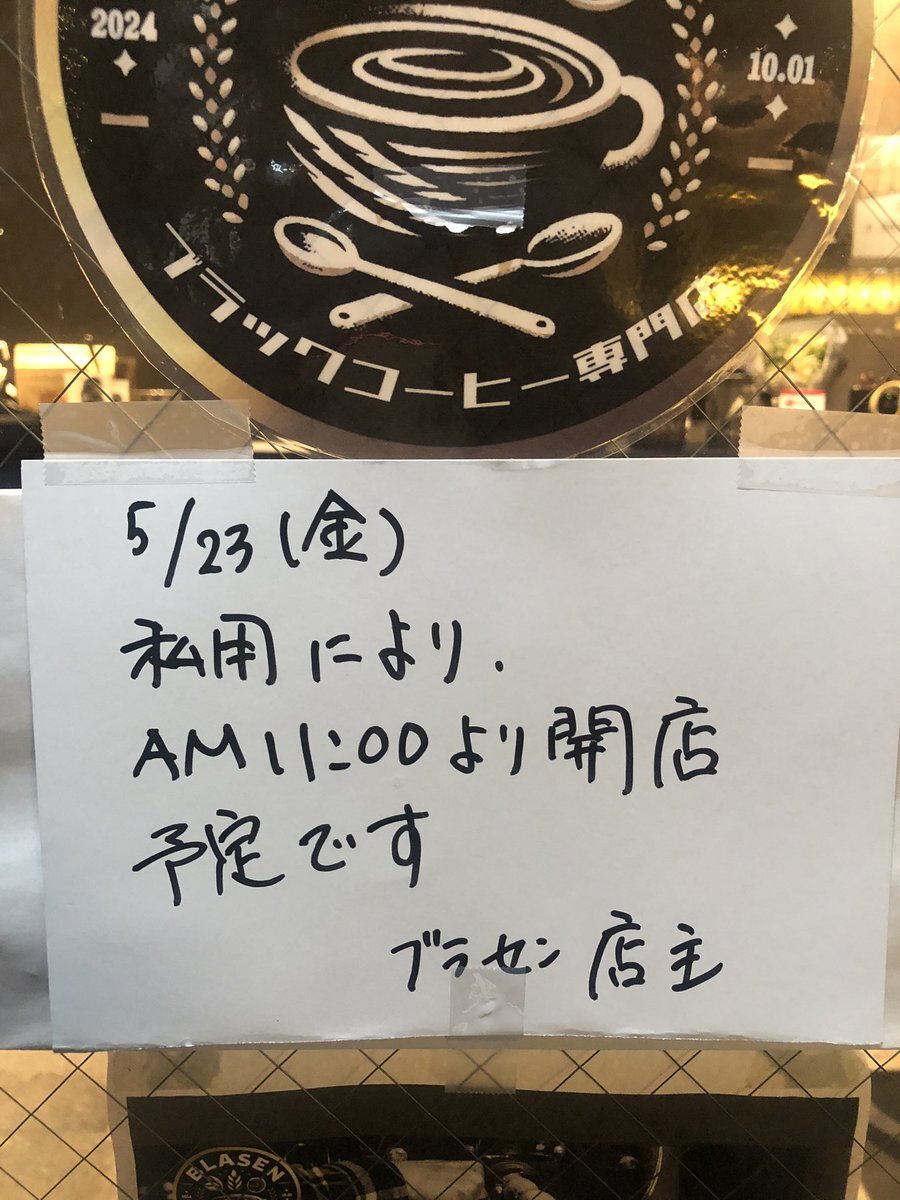 2024
10.01
ブラックコーヒー専門店
5/23(金)
私用により.
AM11:00より開店
予定です
ブラセン 店主
BLASEN